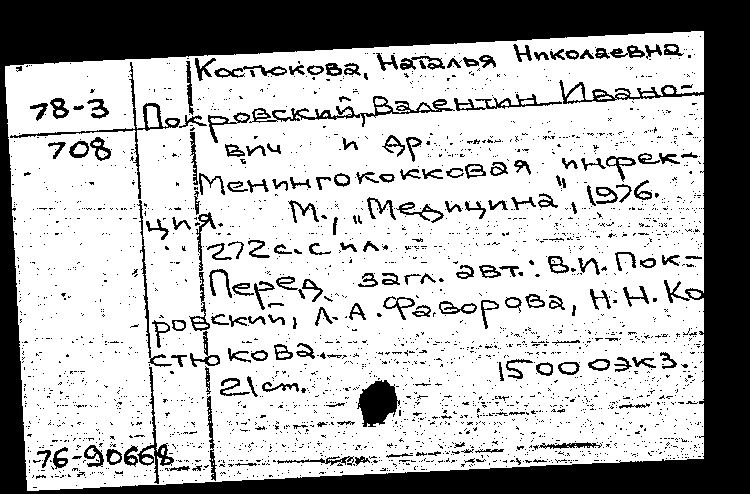 Костюкова, Наталья Николаевна.
78-3
Покровский, Валентин Ивано-
708
вич и др.
Менингококковая инфек-
ция. М., „Медицина", 1976.
272 с. с ил.
Перед загл. авт.: В.И. Пок-
ровский, Л.А. Фаворова, Н.Н. Ко
стюкова.
21 ст. 15000 экз.
76-90668